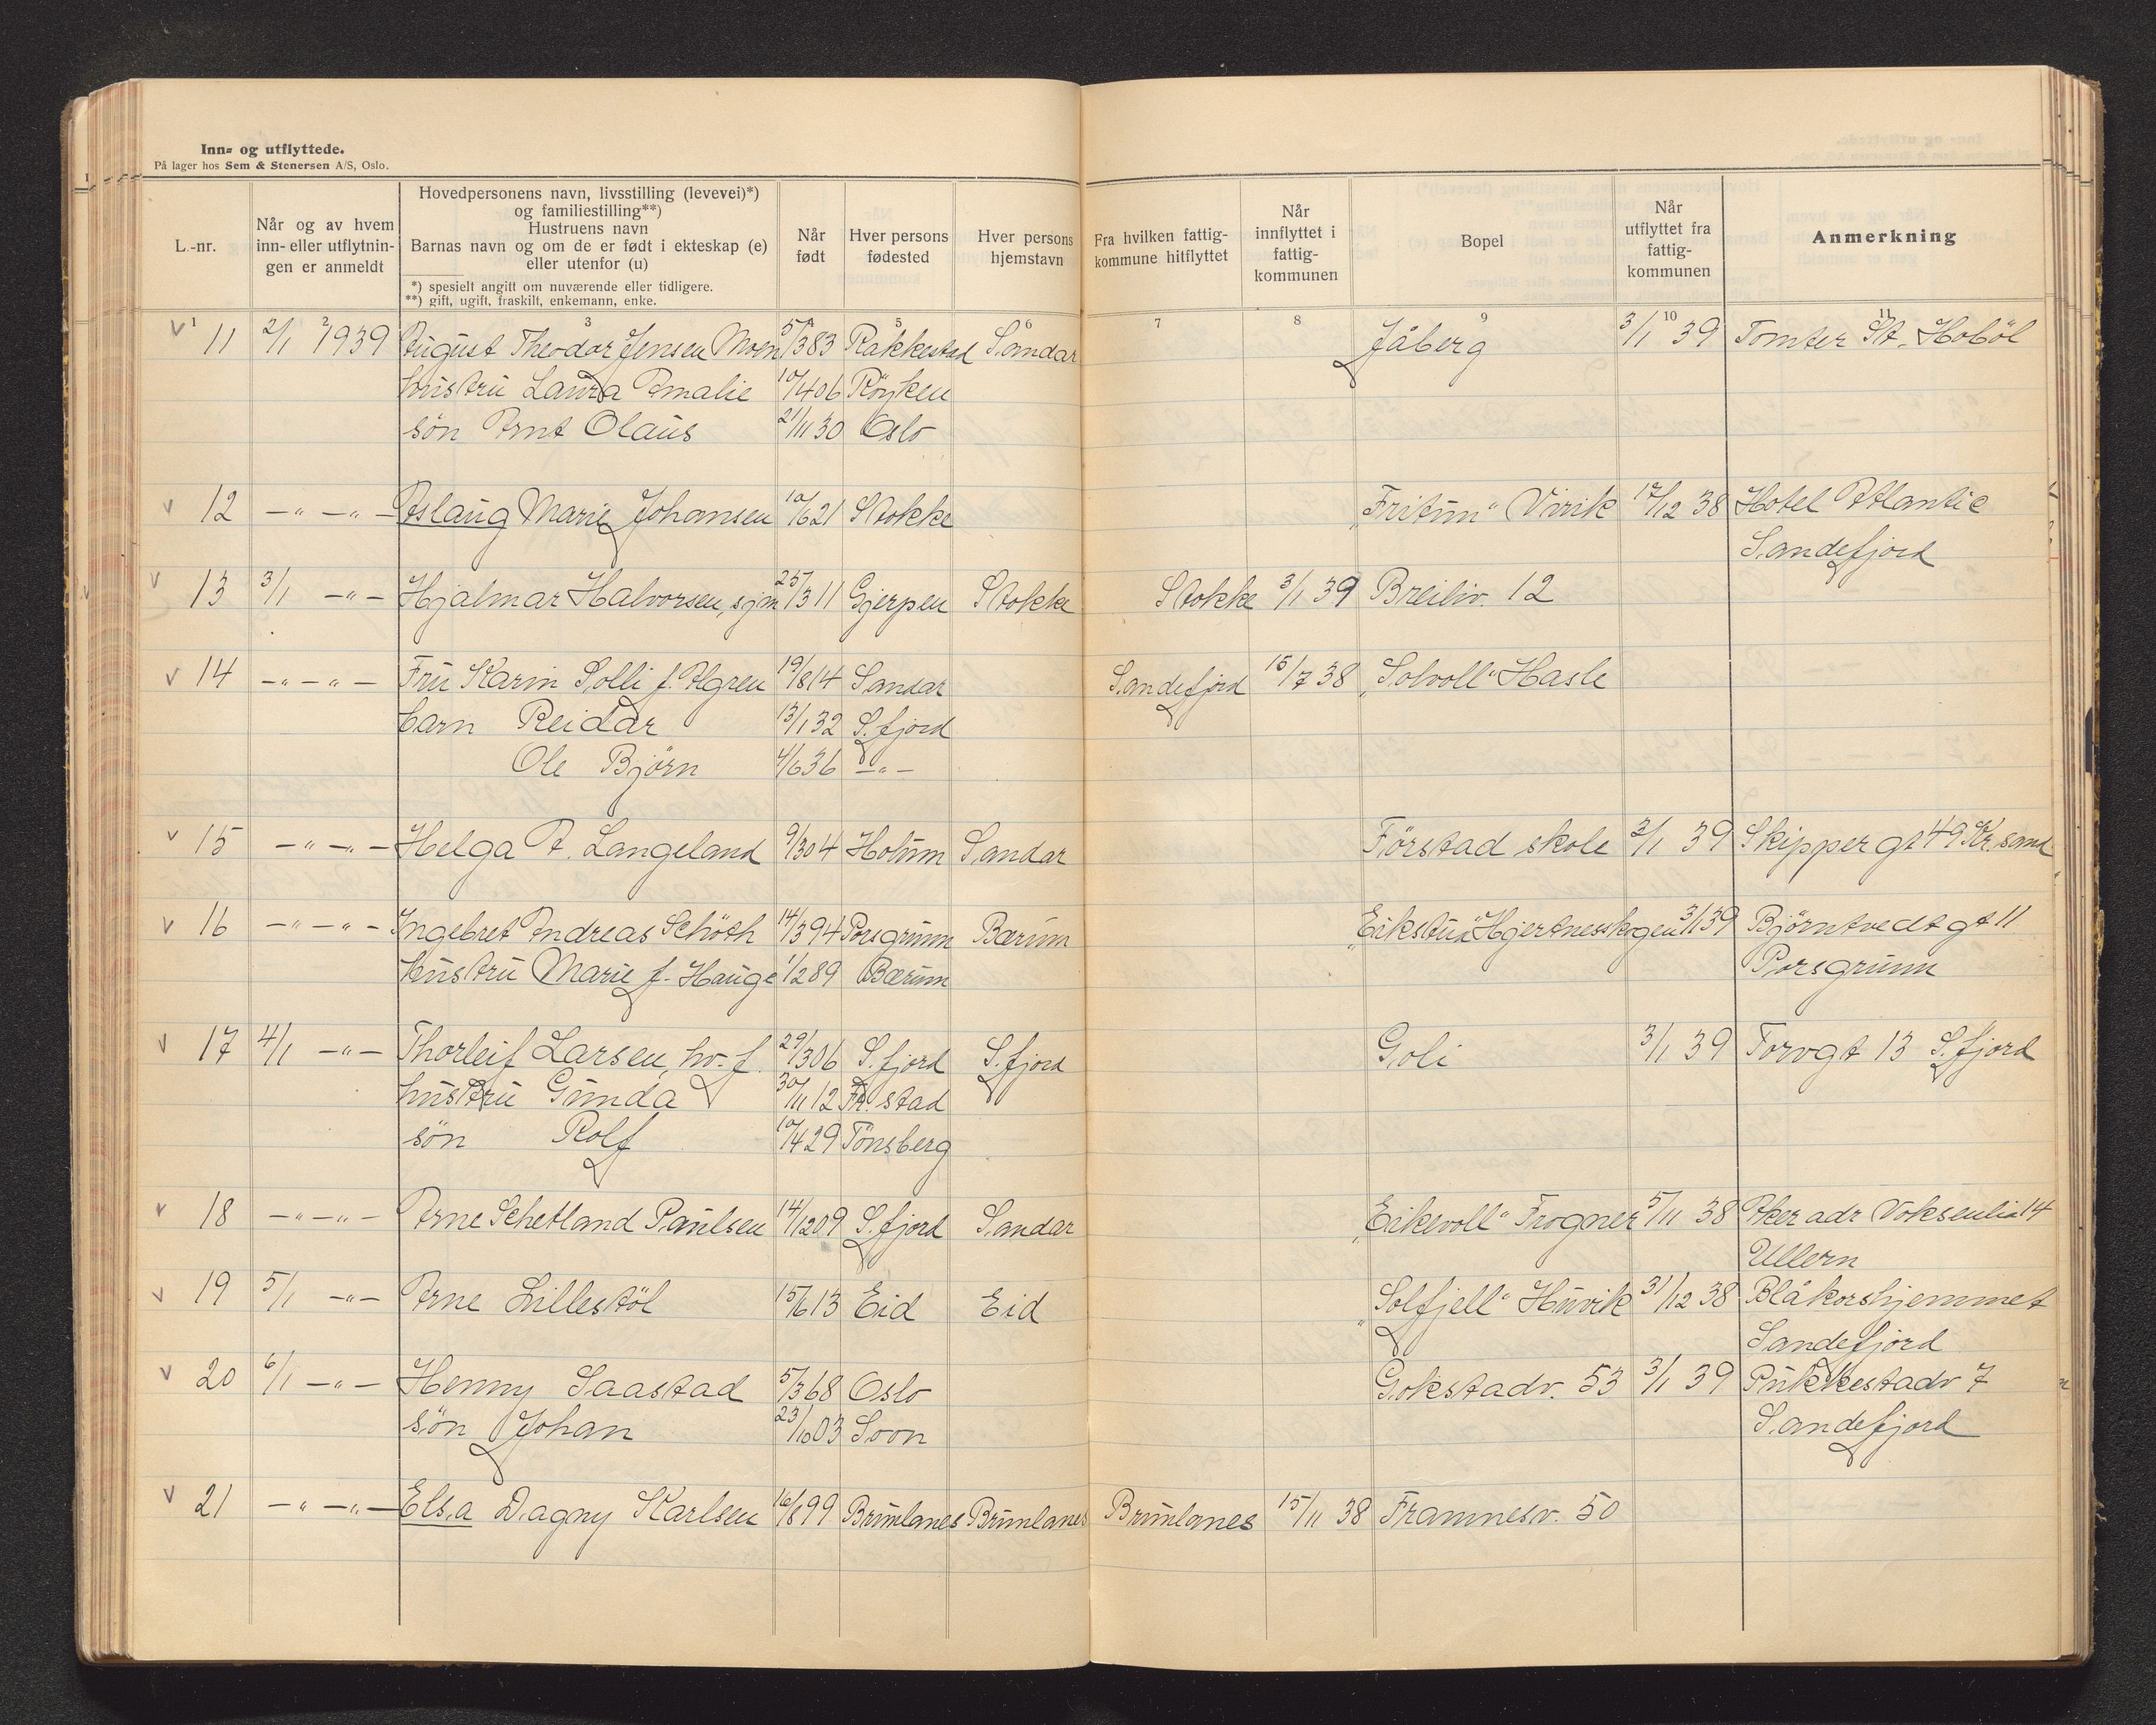 Inn- og utflyttede.
På lager hos Sem & Stenersen A/S, Oslo.
L.-nr.
Når og av hvem
inn- eller utflytnin-
gen er anmeldt
Hovedpersonens navn, livsstilling (levevei)*)
og familiestilling**)
Hustruens navn
Barnas navn og om de er født i ekteskap (e)
eller utenfor (u)
*) spesielt angitt om nuværende eller tidligere.
**) gift, ugift, fraskilt, enkemann, enke.
Når
født
Hver persons
fødested
Hver persons
hjemstavn
Fra hvilken fattig-
kommune hitflyttet
Når
innflyttet i
fattig-
kommunen
Bopel
Når
utflyttet fra
fattig-
kommunen
Anmerkning
1 2 3 4 5 6 7 8 9 10 11
v 11 2/1 1939 August Theodor Jensen Moen 5/3 83 Rakkestad Sandar Jåberg 3/1 39 Tomter St. Hobøl
hustru Laura Amalie 10/4 06 Röyken
søn Arnt Olaus 21/11 30 Oslo
v 12 -"- -"- Aslaug Marie Johansen 10/6 21 Stokke "Fritun" Virik 17/12 38 Hotel Atlantic
Sandefjord
v 13 3/1 -"- Hjalmar Halvorsen, sjm 25/3 11 Gjerpen Stokke Stokke 3/1 39 Breiliv. 12
v 14 -"- -"- Fru Karin Solli f. Agren 19/8 14 Sandar Sandefjord 15/7 38 "Solvoll" Hasle
barn Reidar 13/1 32 S.fjord
Ole Björn 4/6 36 -"-
v 15 -"- -"- Helga A. Langeland 9/3 04 Holum Sandar Förstad skole 3/1 39 Skippergt 49 Kr.sand
v 16 -"- -"- Ingebret Andreas Schöth 14/3 94 Porsgrunn Bærum "Eikstua" Hjertnesskogen 3/1 39 Björntvedtgt 11
Hustru Marie f. Hauge 1/2 89 Bærum Porsgrunn
v 17 4/1 -"- Thorleif Larsen, hv.f. 29/3 06 S.fjord S.fjord Goli 3/1 39 Torvgt 13 S.fjord
hustru Gunda 30/11 12 Fr.stad
søn Rolf 10/4 29 Tönsberg
v 18 -"- -"- Arne Schetland Paulsen 14/12 09 S.fjord Sandar "Eikevoll" Frogner 5/11 38 Aker adr Voksenlia 14
Ullern
v 19 5/1 -"- Arne Lillestöl 15/6 13 Eid Eid "Solfjell" Huvik 31/12 38 Blåkorshjemmet
Sandefjord
v 20 6/1 -"- Henny Saastad 5/3 68 Oslo Gokstadv. 53 3/1 39 Pukkestadv 7
søn Johan 23/10 03 Soon Sandefjord
v 21 -"- -"- Elsa Dagny Karlsen 16/8 99 Brunlanes Brunlanes Brunlanes 15/11 38 Framnesv. 50